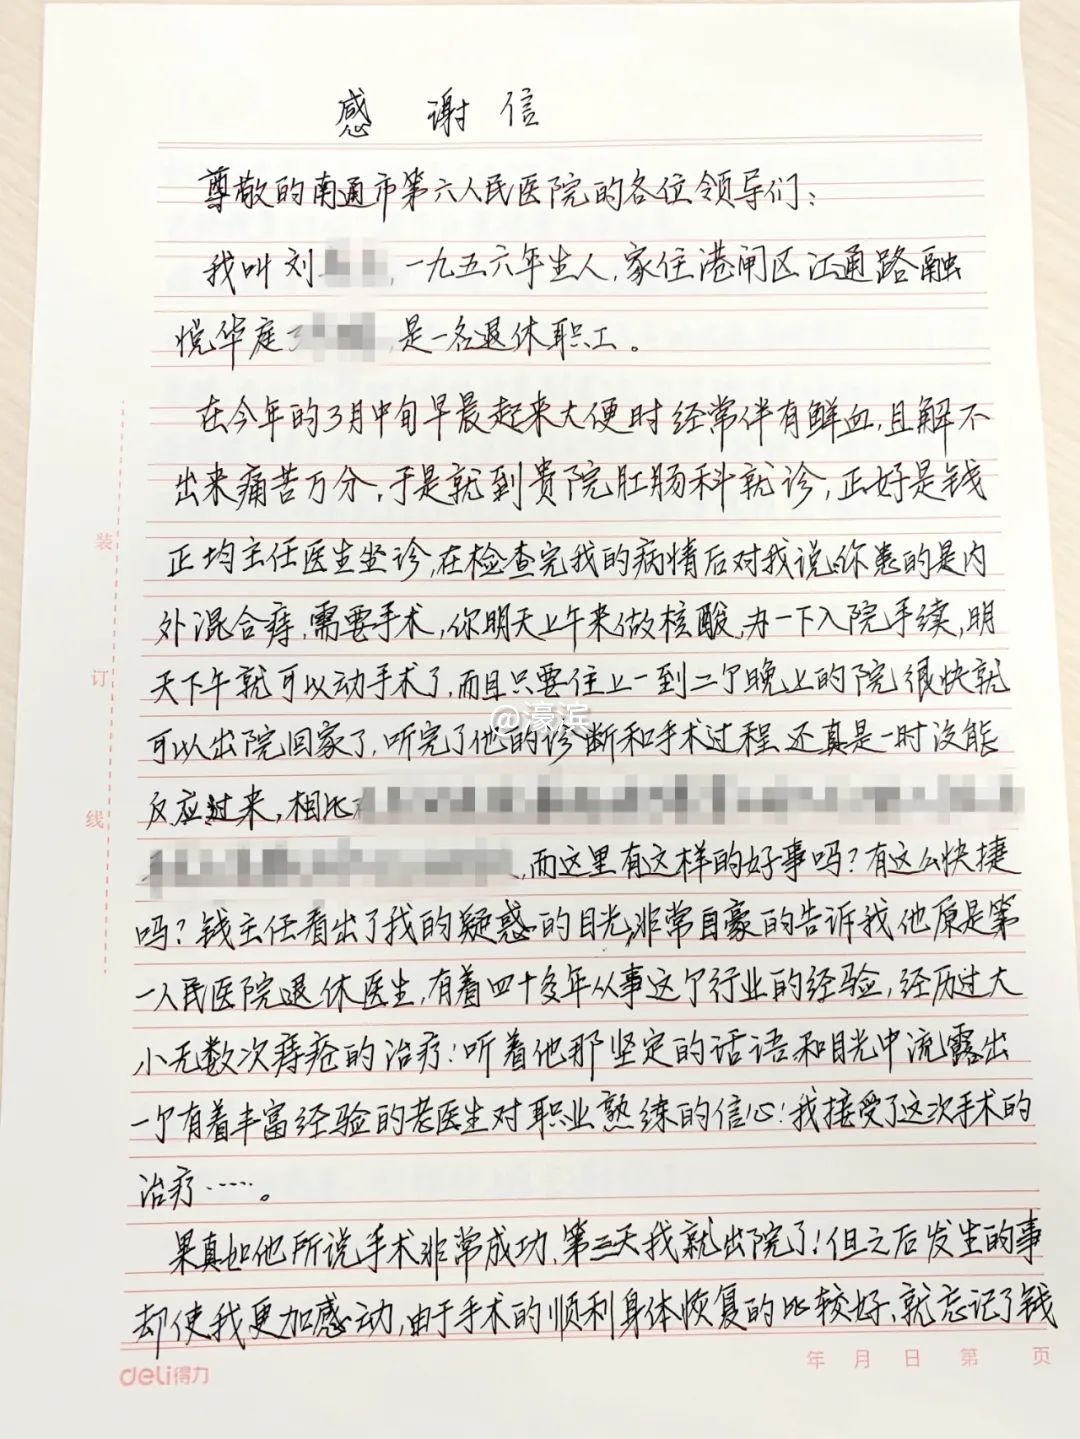 感谢信
尊敬的南通市第六人民医院的各位领导们:
我叫刘,一九五六年生人,家住港闸区江通路融
悦华庭,是一名退休职工。
在今年的3月中旬早晨起来大便时经常伴有鲜血,且解不
出来痛苦万分,于是就到贵院肛肠科就诊,正好是钱
正均主任医生坐诊,在检查完我的病情后对我说:你患的是内
外混合痔,需要手术,你明天上午来做核酸,办一下入院手续,明
天下午就可以动手术了,而且只要住上一到二个晚上的院很快就
可以出院回家了,听完了他的诊断和手术过程还真是一时没能
反应过来,相比
,而这里有这样的好事吗?有这么快捷
吗?钱主任看出了我的疑惑的目光,非常自豪的告诉我他原是第
一人民医院退休医生,有着四十多年从事这个行业的经验,经历过大
小无数次痔疮的治疗!听着他那坚定的话语和目光中流露出
一个有着丰富经验的老医生对职业熟练的信心!我接受了这次手术的
治疗……。
果真如他所说手术非常成功,第三天我就出院了!但之后发生的事
却使我更加感动,由于手术的顺利身体恢复的比较好,就忘记了钱
装
订
线
@濠滨
deli得力
年 月 日 第 页